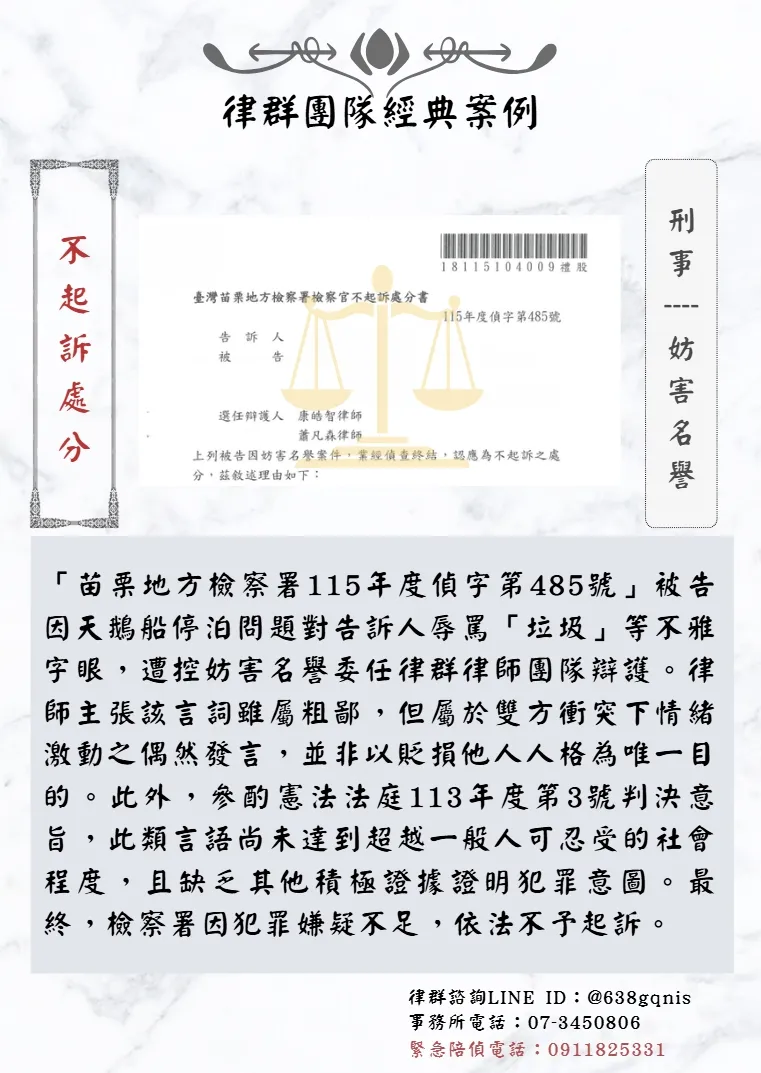 律群團隊經典案例
不起訴處分
18115104009禮股
臺灣苗栗地方檢察署檢察官不起訴處分書
115年度偵字第485號
告訴人
被告
選任辯護人 康皓智律師
蕭凡森律師
上列被告因妨害名譽案件,業經偵查終結,認應為不起訴之處
分,茲敘述理由如下:
刑事----妨害名譽
「苗栗地方檢察署115年度偵字第485號」被告
因天鵝船停泊問題對告訴人辱罵「垃圾」等不雅
字眼,遭控妨害名譽委任律群律師團隊辯護。律
師主張該言詞雖屬粗鄙,但屬於雙方衝突下情緒
激動之偶然發言,並非以貶損他人人格為唯一目
的。此外,參酌憲法法庭113年度第3號判決意
旨,此類言語尚未達到超越一般人可忍受的社會
程度,且缺乏其他積極證據證明犯罪意圖。最
終,檢察署因犯罪嫌疑不足,依法不予起訴。
律群諮詢LINE ID:@638gqnis
事務所電話:07-3450806
緊急陪偵電話:0911825331